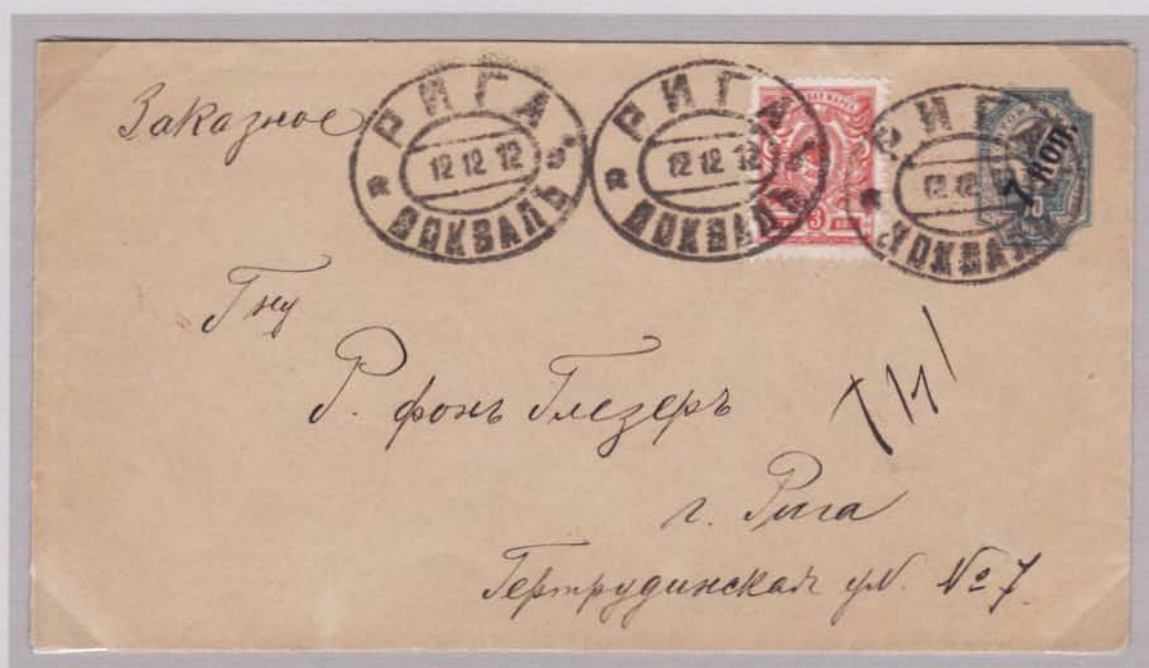 Заказное
РИГА
12 12 12
ВОКЗАЛЪ
РИГА
12 12 12
ВОКЗАЛЪ
3
РИГА
12 12
ВОКЗАЛЪ
7 коп.
Гну
Р. фонъ Глезеръ
г. Рига
Гертрудинская ул. № 7.